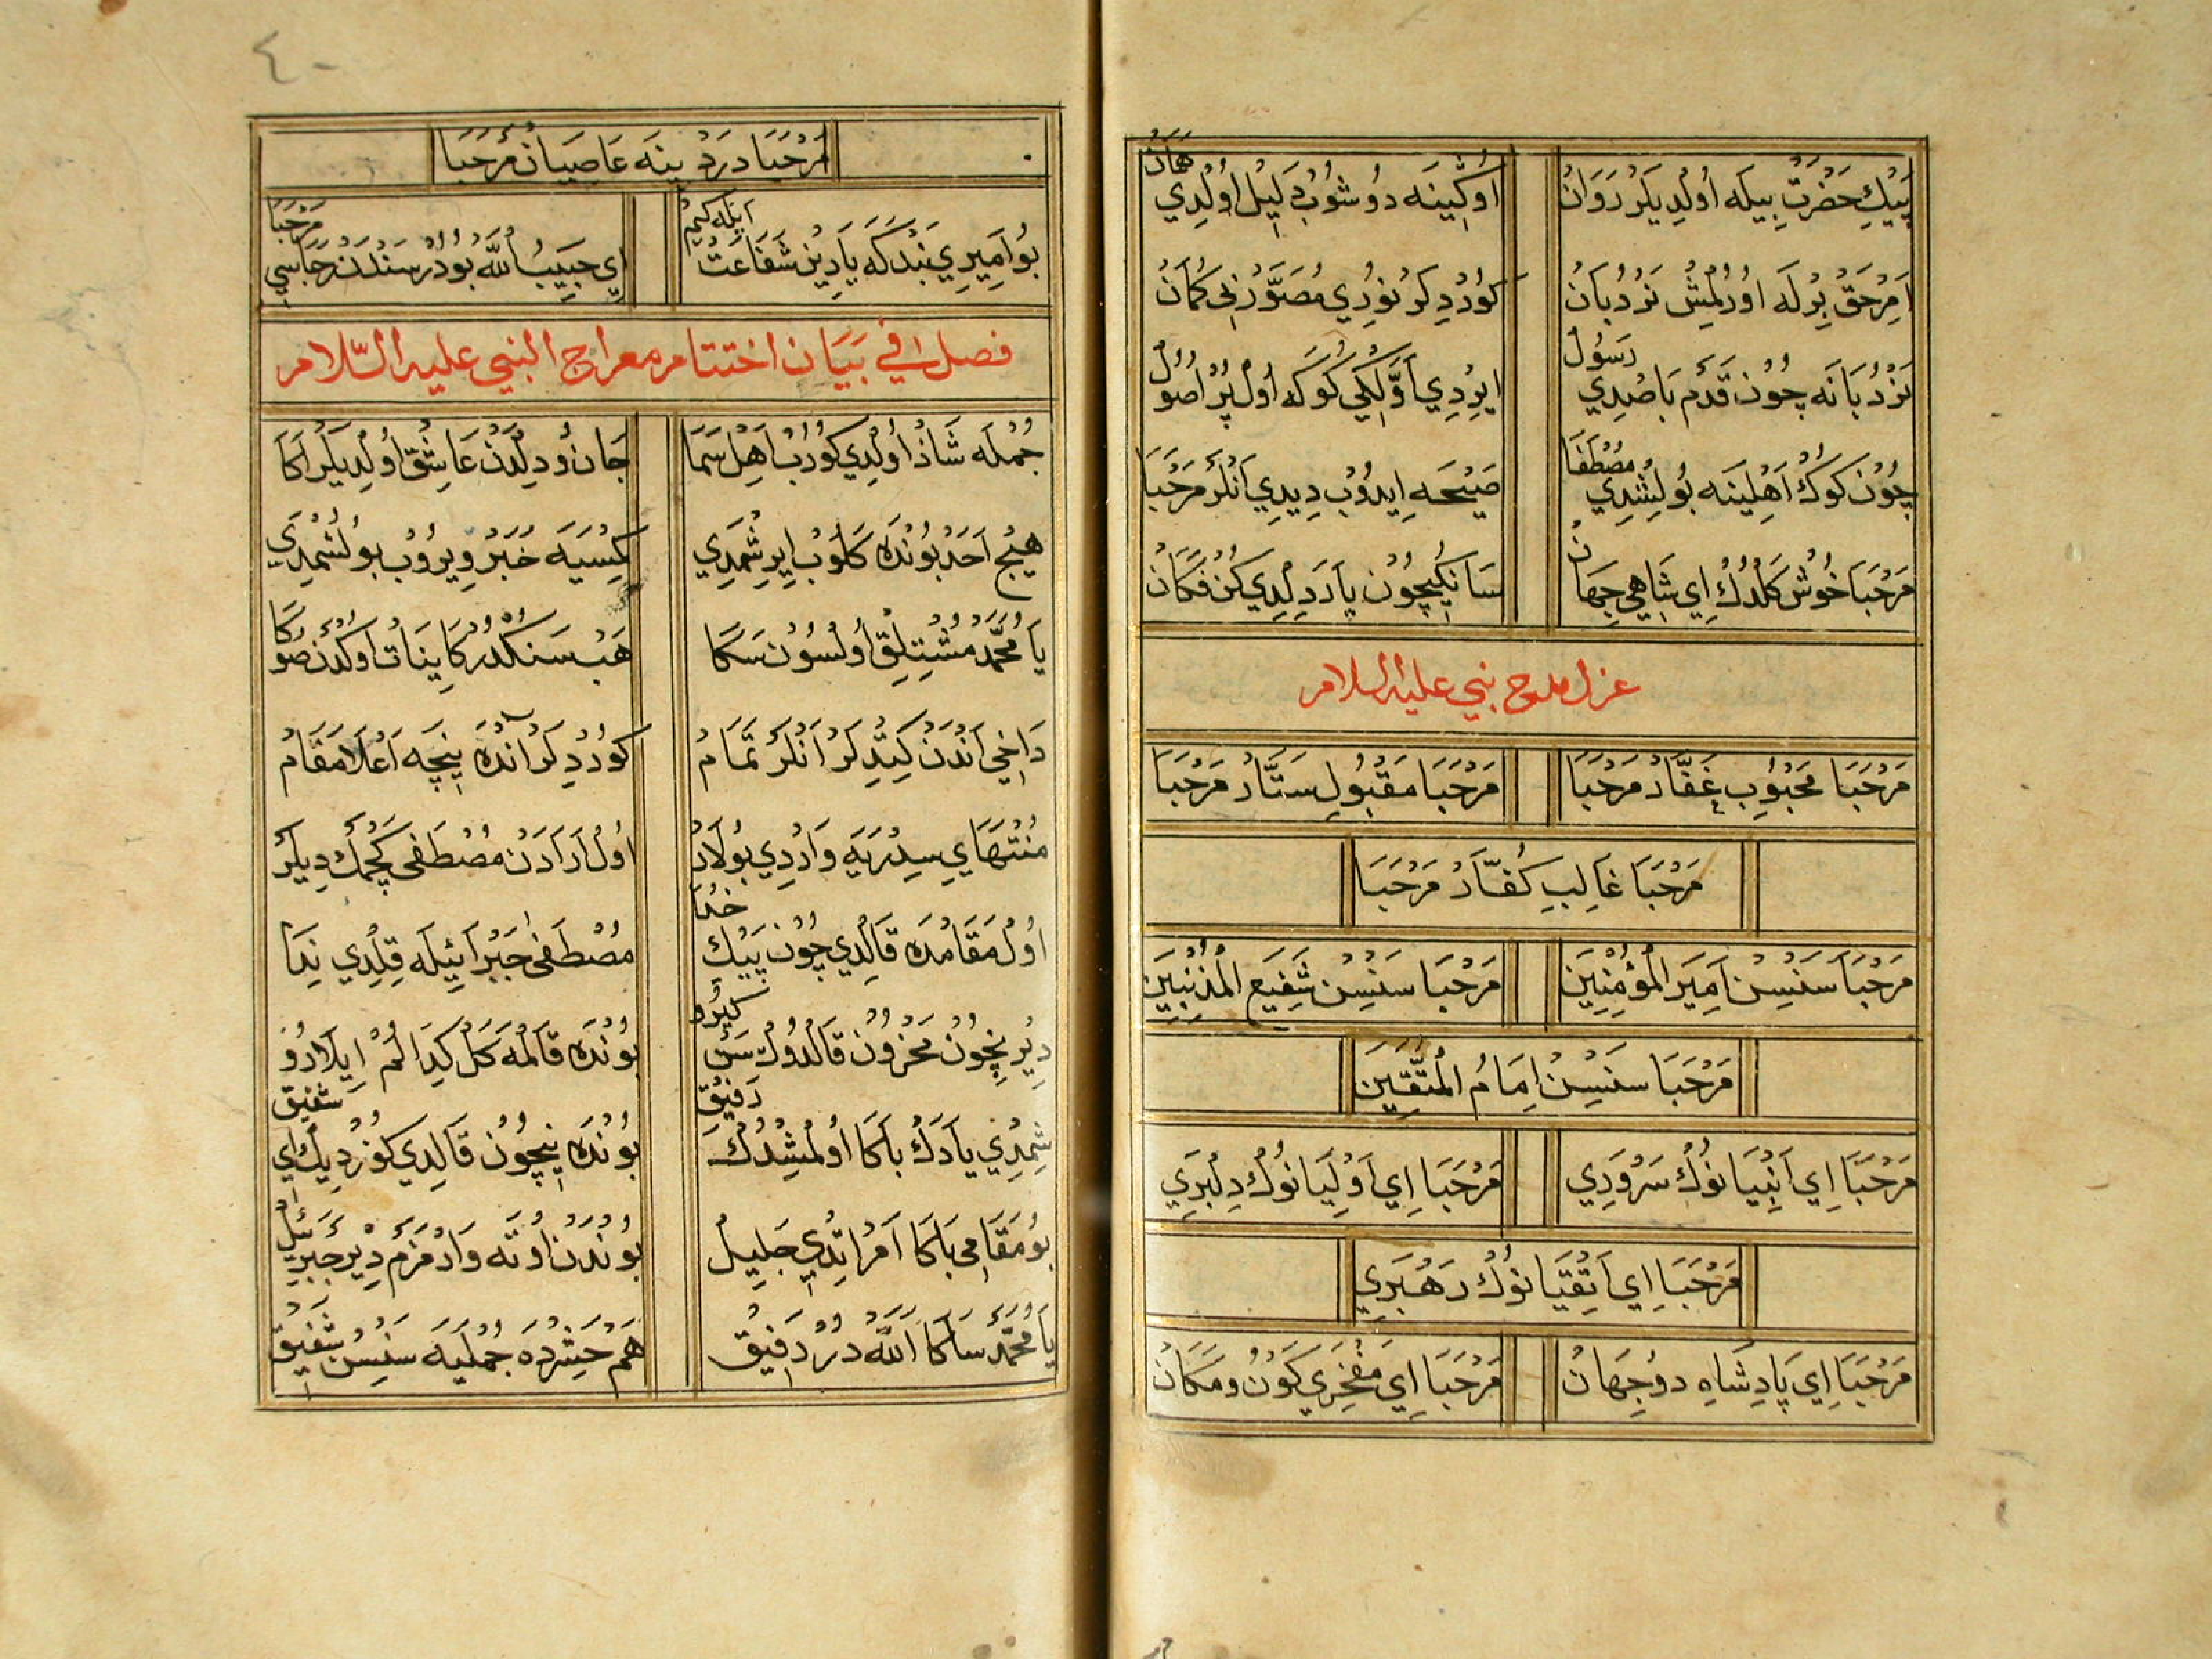 پَيْكِ حَضْرَتْ بِيلَه اُولْدِيلَرْ رَوَانْ اوُكِينَه دُوشُوبْ دَلِيلْ اوُلْدِي هَمَانْ
اَمْرِ حَقْ بِرْلَه اوُرُلْمِشْ نَرْدُبَانْ كوُرْدِيلَرْ نوُرِي مُصَوَّرْ بِي كُمَانْ
نَرْدُبَانَه چوُنْ قَدَمْ بَاصْدِي رَسوُلْ ايرْدِي اَوَّلْكِي كوُكَه اوُلْ پُرْ اصوُلْ
چوُنْ كوُكْ اَهْلِينَه بوُلِشْدِي مُصْطَفَا صَيْحَه اِيدوُبْ دِيدِي اَنْلَرْ مَرْحَبَا
مَرْحَبَا خوُشْ كَلْدُكْ اِي شَاهِي جِهَانْ سَانِكِيچوُنْ يَارَدِلْدِي كُنْ فَكَانْ
غزل مدح نبي عليه السلام
مَرْحَبَا مَحْبوُبِ غَفَّارْ مَرْحَبَا مَرْحَبَا مَقْبوُلِ سَتَّارْ مَرْحَبَا
مَرْحَبَا غَالِبِ كُفَّارْ مَرْحَبَا
مَرْحَبَا سَنْسِنْ اَمِيرَ الْمُؤْمِنِينَ مَرْحَبَا سَنْسِنْ شَفِيعَ الْمُذْنِبِينَ
مَرْحَبَا سَنْسِنْ اِمَامُ الْمُتَّقِينَ
مَرْحَبَا اِي اَنْبِيَانوُكْ سَرْوَرِي مَرْحَبَا اِي اَوْلِيَانوُكْ دِلْبَرِي
مَرْحَبَا اِي اَتْقِيَانوُكْ رَهْبَرِي
مَرْحَبَا اِي پَادِشَاهِ دوُجِهَانْ مَرْحَبَا اِي مَفْخَرِي كَوْنُ ومَكَانْ
٤٠
مَرْحَبَا دَرْدِينَه عَاصِيَانْ مَرْحَبَا
بوُ اَمِيرِي بَنْدَكَه يَارِينْ شَفَاعَتْ ايْلَه كِيمْ اِي حَبِيبُ اللّٰه بوُدُرْ سَنْدَنْ رَجَاسِي مَرْحَبَا
فصل في بَيَان اختتام معراج النبي عليه السّلام
جُمْلَه شَادْ اوُلْدِي كوُرُبْ اَهْلِ سَمَا جَانْ ودِلْدَنْ عَاشِقْ اوُلْدِيلَرْ اَكَا
هيچْ اَحَدْ بوُنْدَه كَلوُبْ اِيرِشْمَدِي كِمْسَيَه خَبَرْ وِيروُبْ بوُلُشْمَدِي
يَا مُحَمَّدْ مُشْتِلِقْ اوُلْسوُنْ سَكَا هَبْ سَنْكْدُرْ كَايِنَاتْ اوُكْدَنْ صوُكَا
دَاخِي اَنْدَنْ كِتْدِيلَرْ اَنْلَرْ تَمَامْ كوُرْدِيلَرْ اَنْدَه نِيچَه اَعْلَا مَقَامْ
مُنْتَهَايِ سِدْرَيَه وَارْدِي بوُلَارْ اوُلْ اَرَادَنْ مُصْطَفَى كَچْمَكْ دِيلَرْ
اوُلْ مَقَامْدَه قَالْدِي چوُنْ پَيْكِ خُدَا مُصْطَفَى جَبْرَائِيلَه قِلْدِي نِدَا
دِيرْ نِيچوُنْ مَحْزوُنْ قَالْدوُكْ سَنْ كِيرُو بوُنْدَه قَالْمَه كَلْ كِيدَالُمْ اِيلَارُو
شِمْدِي يَادَكْ بَاكَا اوُلْمِشْدُكْ رَفِيقْ بوُنْدَه نِيچوُنْ قَالْدِي كوُرْدِيكْ اِي شَفِيقْ
بوُ مَقَامِي بَاكَا اَمْرْ اِتْدِي جَلِيلْ بوُنْدَنْ اوُتَه وَارْمَزَمْ دِيرْ جَبْرَئِيلْ
يَا مُحَمَّدْ سَاكَا اَللّٰه دُرْ رَفِيقْ هَمْ حَشِرْدَه جُمْلَيَه سَنْسِنْ شَفِيقْ